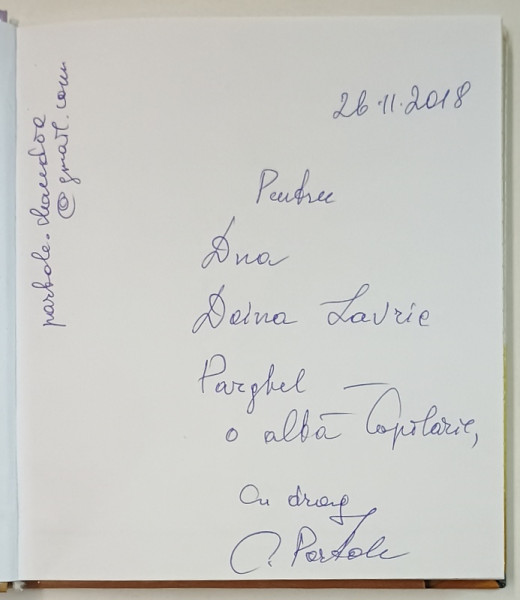 26.11.2018
Pentru
Dna
Doina Lavric
Parghel —
o albă Copilărie,
Cu drag
C. Partole
partole.
@gmail.com